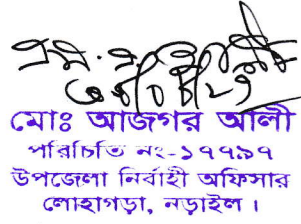 মোঃ আজগর আলী
পরিচিতি নং-১৭৭৯৭
উপজেলা নির্বাহী অফিসার
লোহাগড়া, নড়াইল।